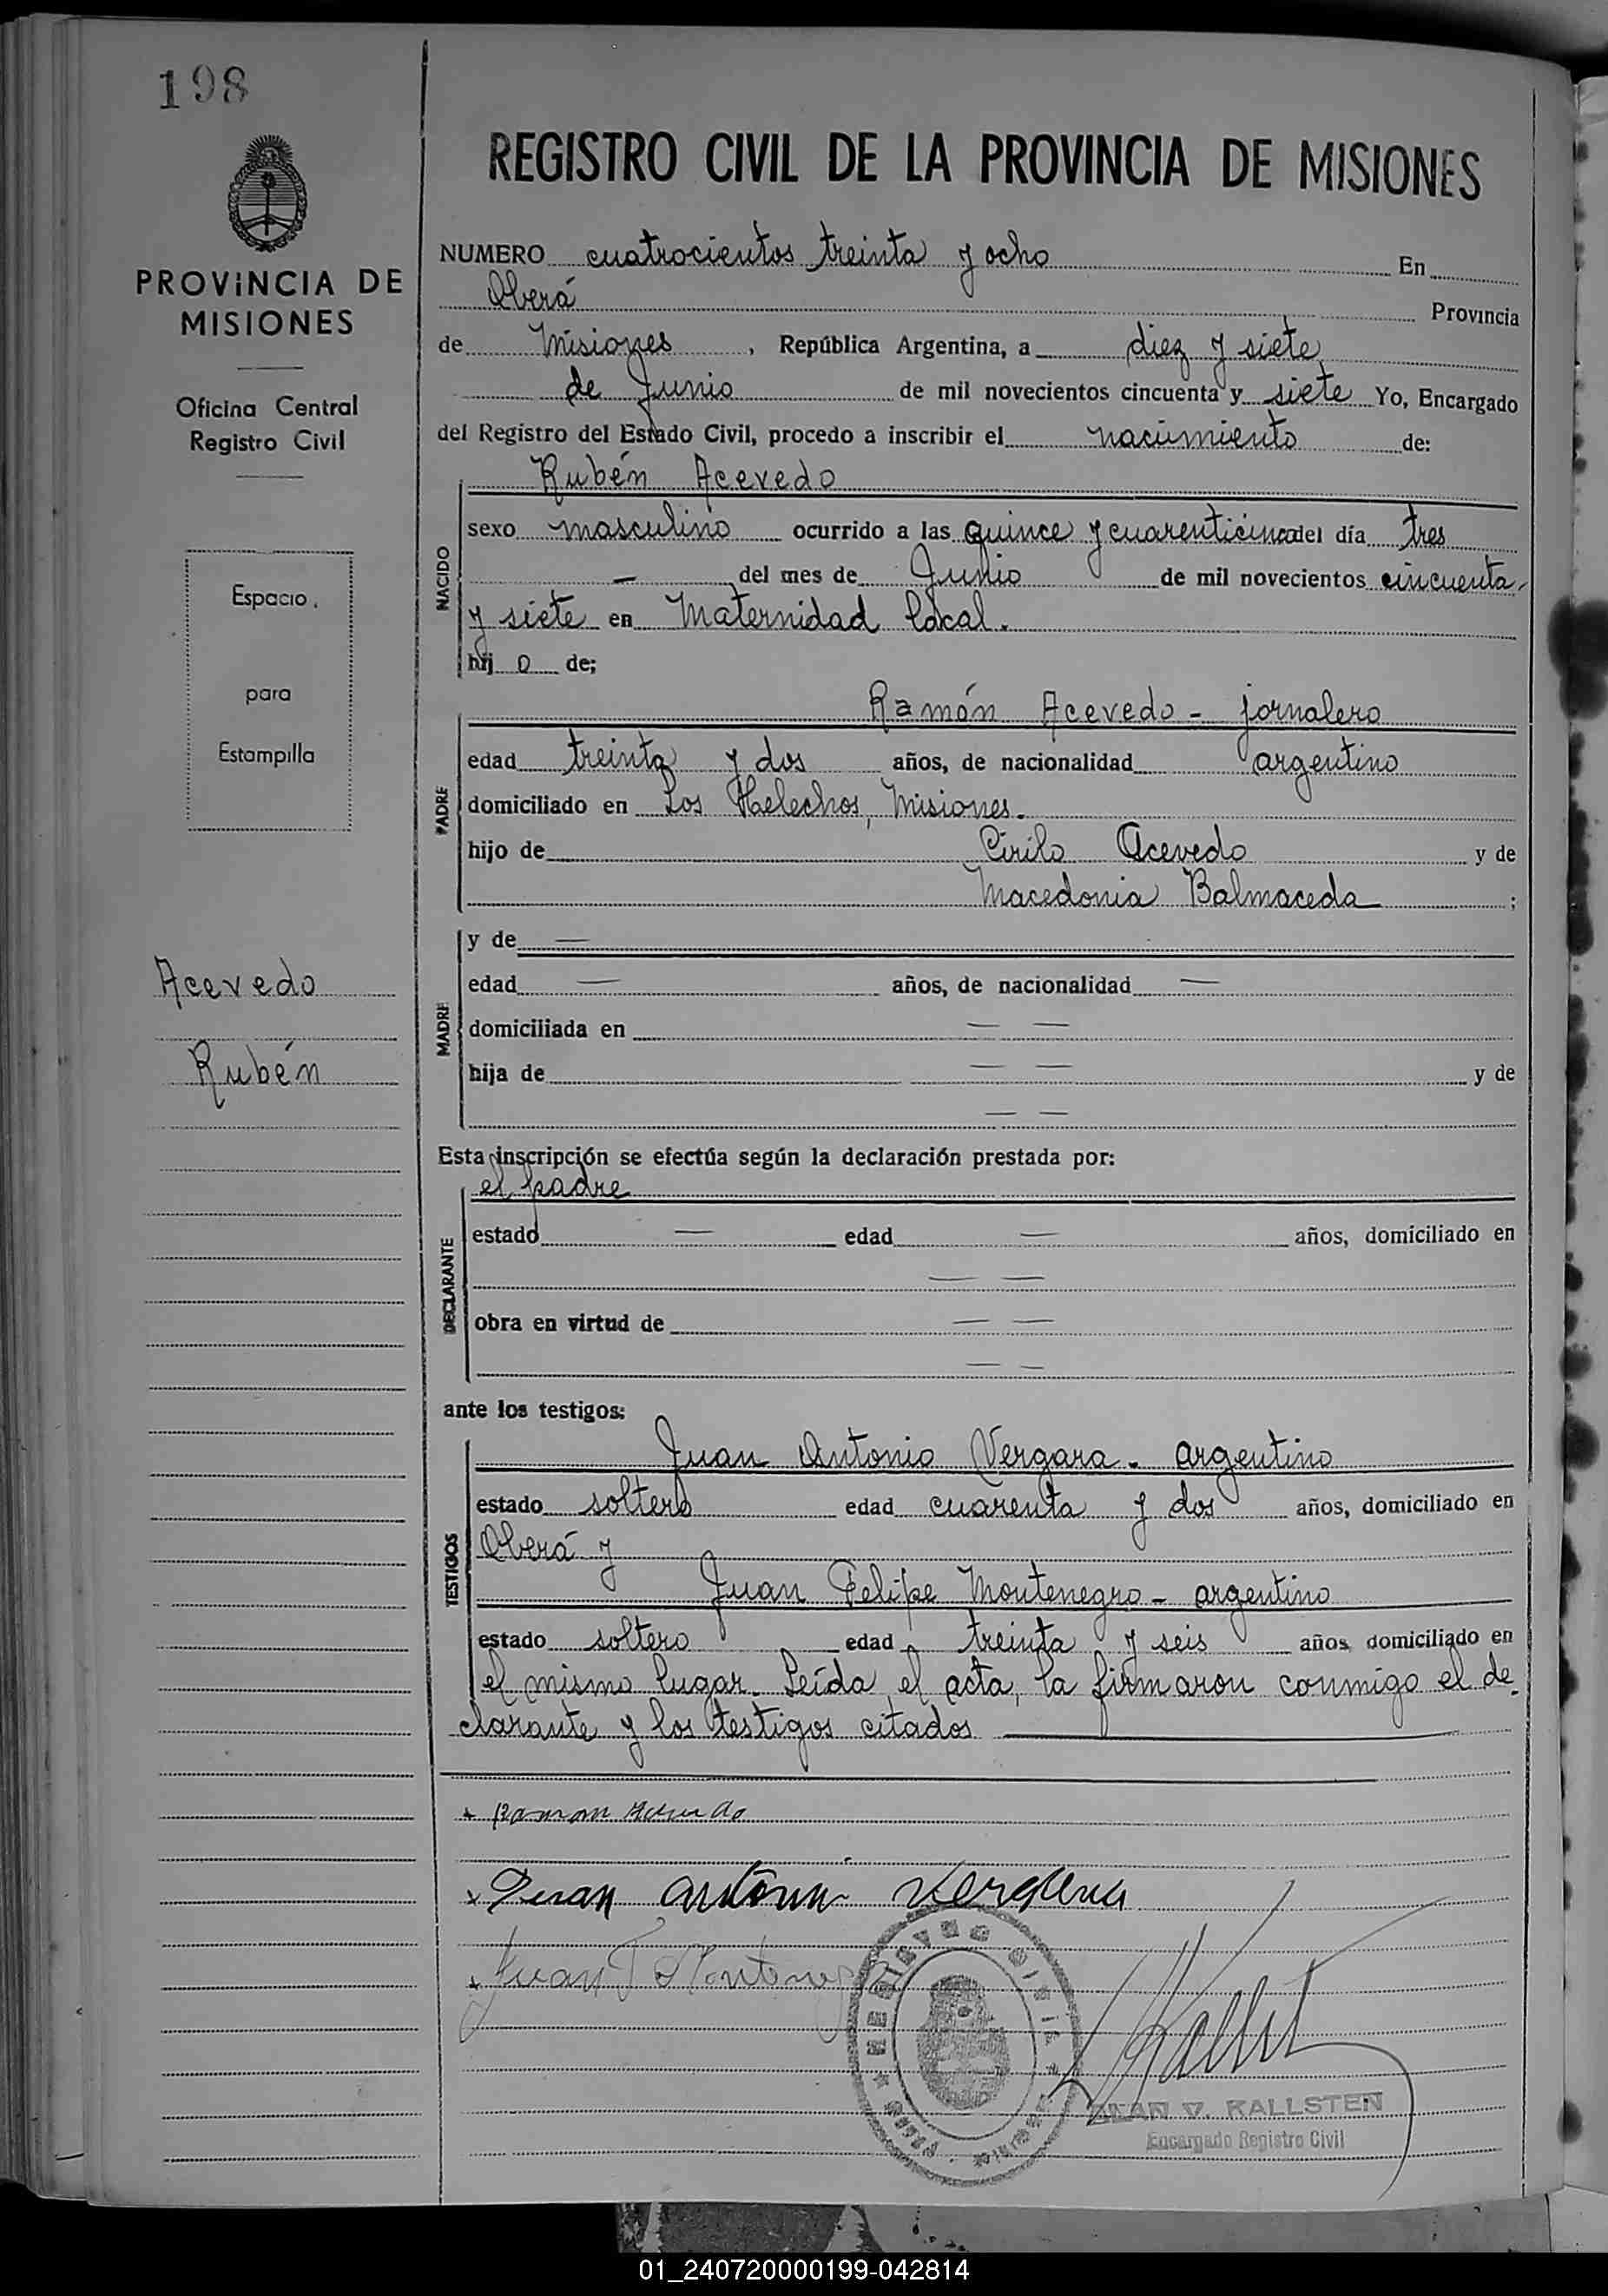 198
PROVINCIA DE
MISIONES
Oficina Central
Registro Civil
Espacio
para
Estampilla
Acevedo
Rubén
REGISTRO CIVIL DE LA PROVINCIA DE MISIONES
NUMERO cuatrocientos treinta y ocho En
Oberá Provincia
de Misiones, República Argentina, a diez y siete
de Junio de mil novecientos cincuenta y siete Yo, Encargado
del Registro del Estado Civil, procedo a inscribir el nacimiento de:
Rubén Acevedo
NACIDO
sexo masculino ocurrido a las quince y cuarenticinco del día tres
— del mes de Junio de mil novecientos cincuenta
y siete en Maternidad local.
hij o de;
Ramón Acevedo - jornalero
PADRE
edad treinta y dos años, de nacionalidad argentino
domiciliado en Los Helechos, Misiones.
hijo de Cirilo Acevedo y de
Macedonia Balmaceda ;
MADRE
y de —
edad — años, de nacionalidad —
domiciliada en — —
hija de — — y de
— —
Esta inscripción se efectúa según la declaración prestada por:
el padre
DECLARANTE
estado — edad — años, domiciliado en
— —
obra en virtud de — —
— —
ante los testigos:
Juan Antonio Vergara - argentino
TESTIGOS
estado soltero edad cuarenta y dos años, domiciliado en
Oberá y
Juan Felipe Montenegro - argentino
estado soltero edad treinta y seis años domiciliado en
el mismo lugar. Leída el acta, la firmaron conmigo el de-
clarante y los testigos citados
x Ramon Acevedo
x Juan Antonio Vergara
x Juan F Montenegro
REGISTRO CIVIL
V. KALLSTEN
Encargado Registro Civil
01_240720000199-042814